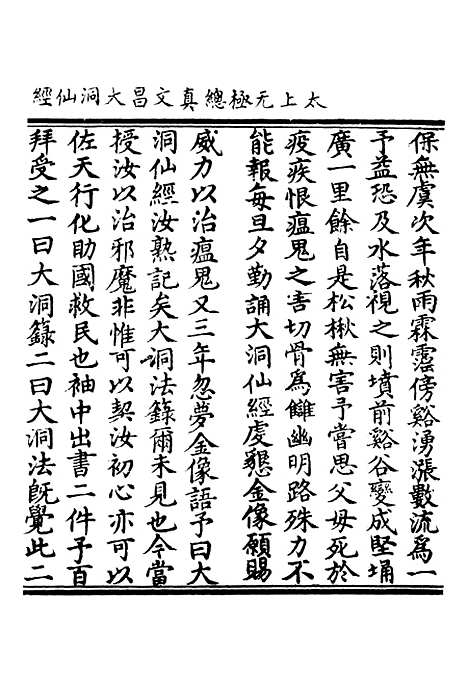 太上无極總真文昌大洞仙經
保無虞次年秋雨霖霪傍谿湧漲數流為一
予益恐及水落視之則墳前谿谷變成堅埇
廣一里餘自是松楸無害予嘗思父母死於
疫疾恨瘟鬼之害切骨為讎幽明路殊力不
能報每旦夕勤誦大洞仙經虔懇金像願賜
威力以治瘟鬼又三年忽夢金像語予曰大
洞仙經汝熟記矣大洞法籙爾未見也今當
授汝以治邪魔非惟可以契汝初心亦可以
佐天行化助國救民也袖中出書二件予百
拜受之一曰大洞籙二曰大洞法旣覺此二